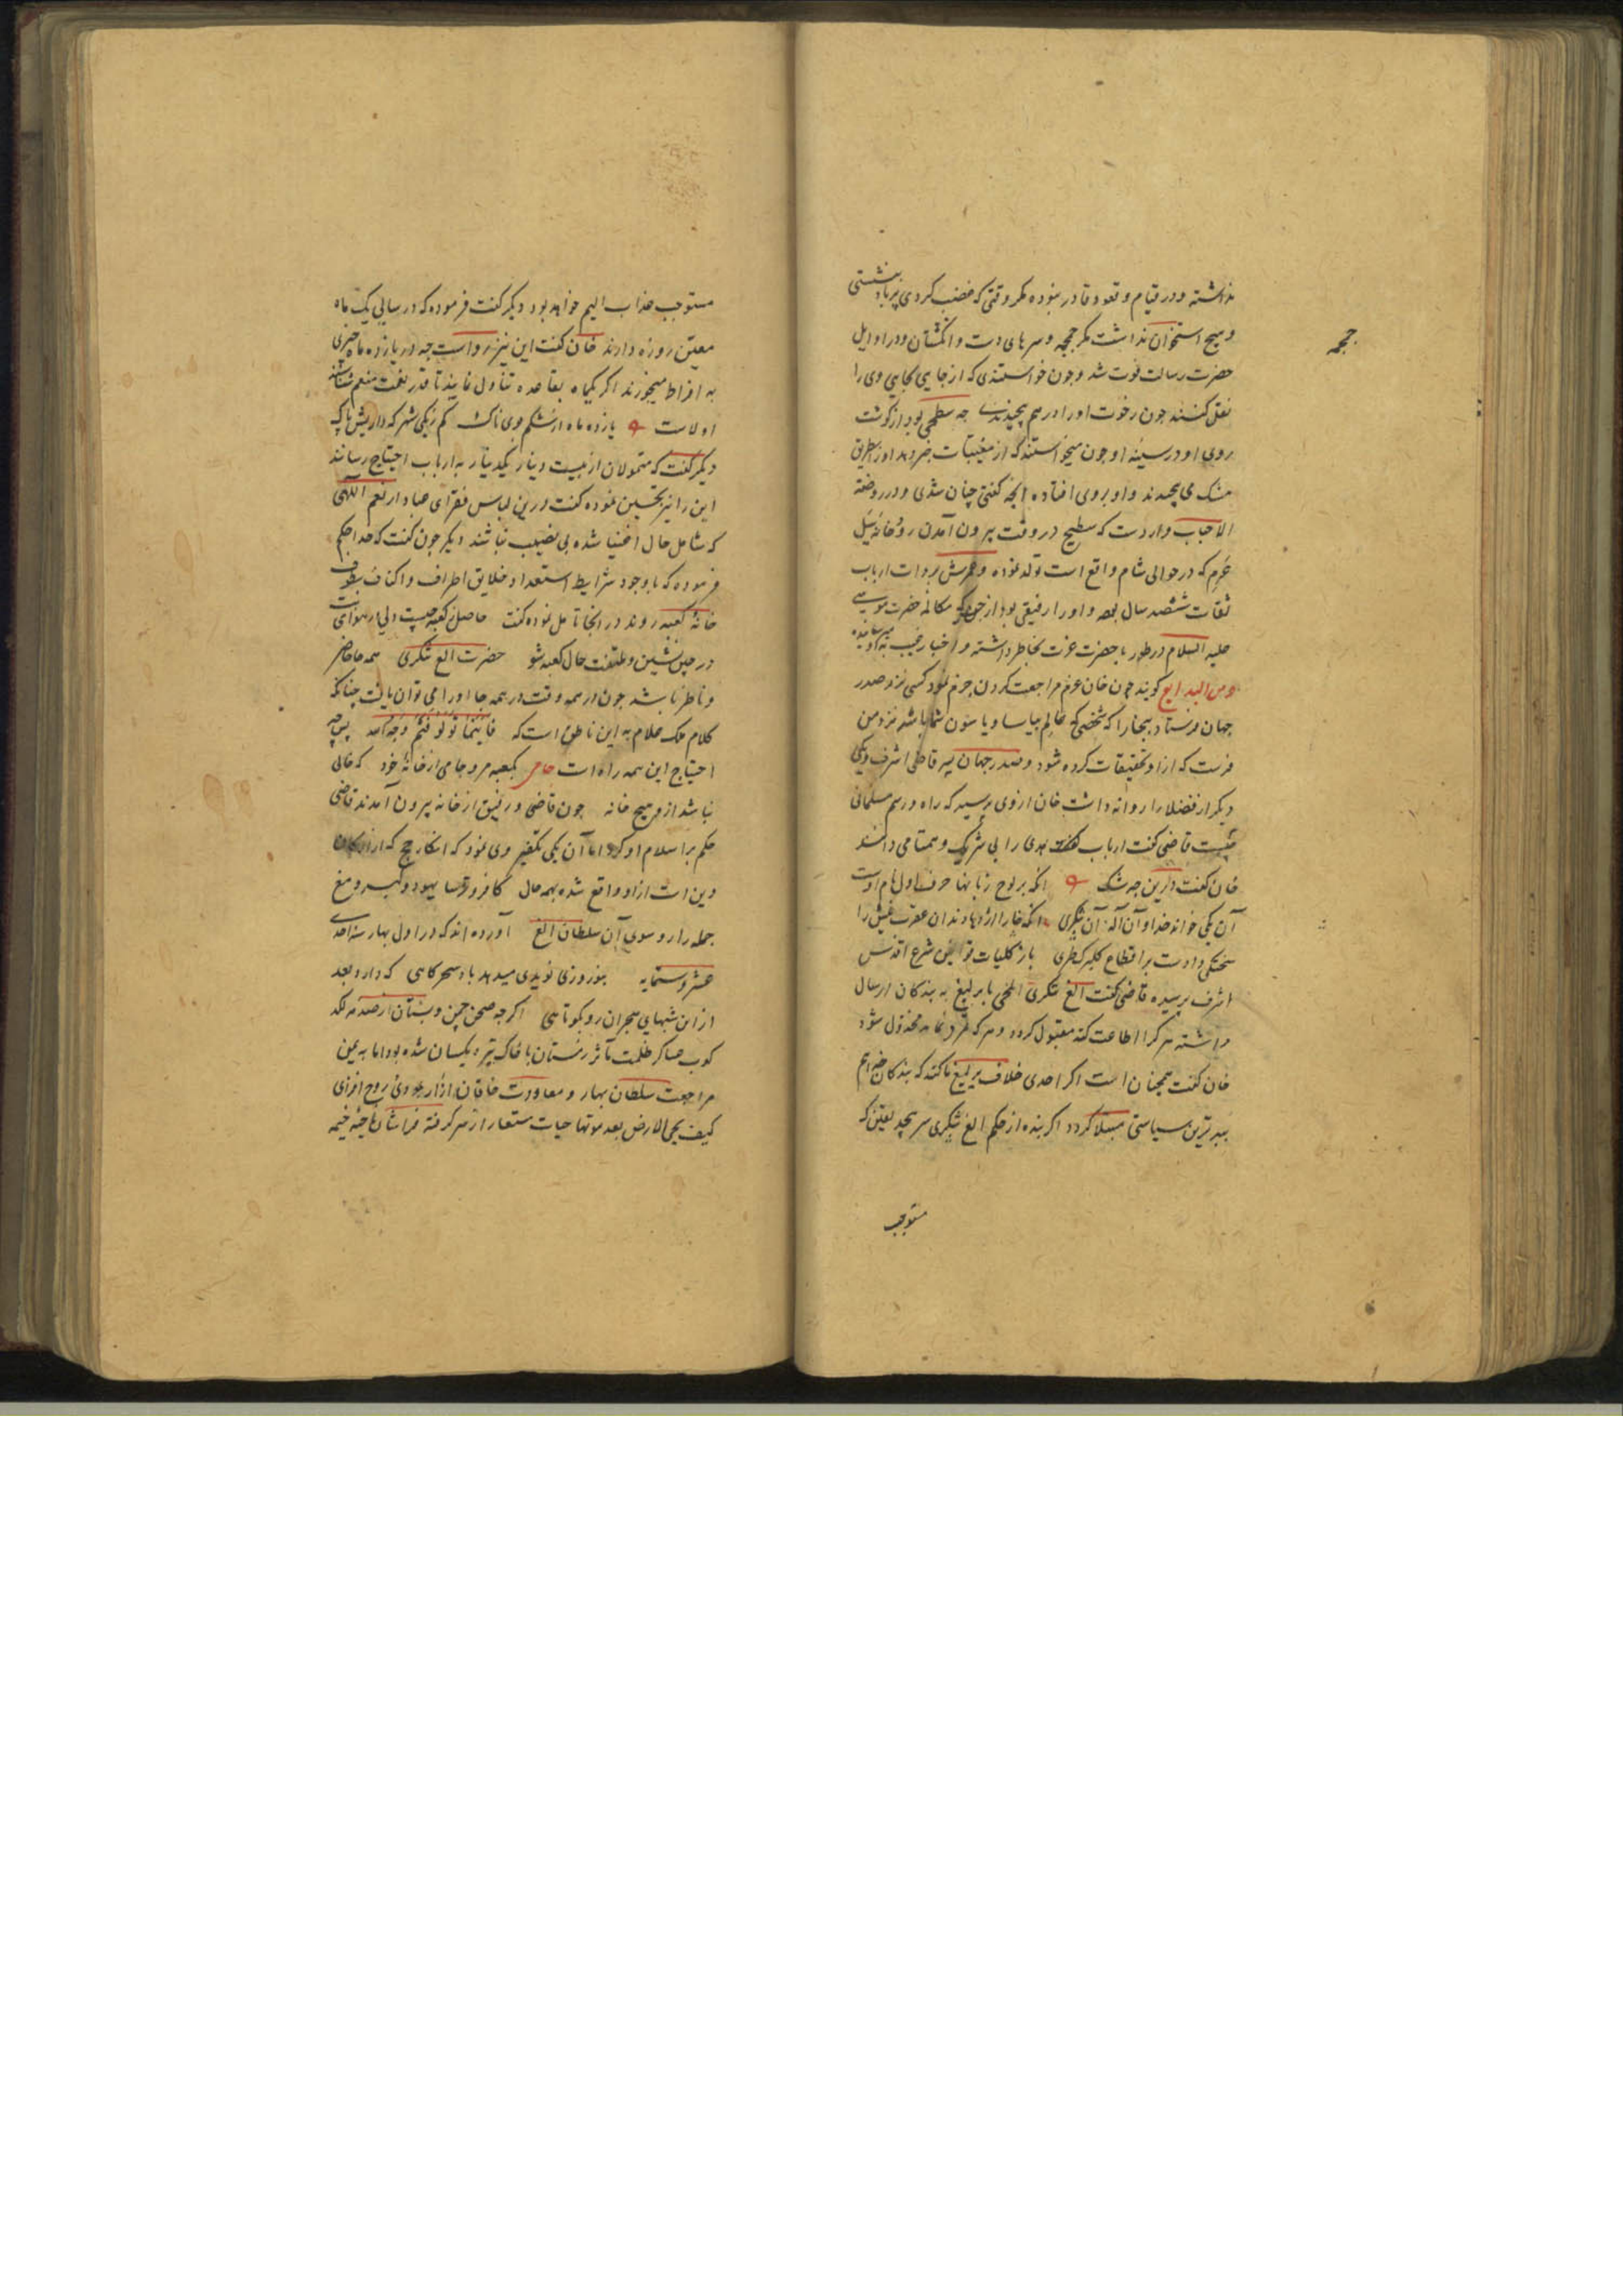 نداشته و در قیام و قعود قادر نبوده مگر وقتی که غضب کردی پرباد بنشستی
و هیچ استخوان نداشت مگر جمجمه و سرهای دست و انگشتان و در اوایل
جمجمه
حضرت رسالت فوت شد و چون خواستندی که از جایی بجایی وی را
نقل کنند چون رخوت او را درهم پیچیدندی چه سطحی بود از گوشت
روی او در سینه او چون میخواستند که از مغیبات خبر دهد او را بطریق
مشک می پیچیدند و او بروی افتاده آنچه گفتی چنان شدی و در روضة
الاحباب وارد است که سطیح در وقت بیرون آمدن رودخانه سیل
عرم که در حوالی شام واقع است تولد نموده و عمرش بروات ارباب
ثقات ششصد سال بود و او را رفیقی بود از جن که مکالمه حضرت موسی
علیه السلام در طور با حضرت عزت بخاطر داشته و اخبار غیب به او میرسانیده
و من البدایع گویند چون خان عزم مراجعت کردن جزم نمود کسی نزد صدر
جهان فرستاد ببخارا که شخصی که عالم بیاسا و یاسون شما باشد نزد من
فرست که از او تحقیقات کرده شود و صدر جهان پیر قاضی اشرف و یکی
دیگر از فضلا را روانه داشت خان از وی پرسید که راه و رسم مسلمانی
چیست قاضی گفت ارباب خدای را بی شریک و همتا می دانند
خان گفت درین چه شک آنکه بر لوح زبانها حرف اول نام اوست
آن یکی خواند خدا و آن اله آن تنکری
سختگی دادست بر اقطاع گلبرگ طری باز کلیات قوانین شرع اقدس
اشرف پرسیده قاضی گفت الغ تنکری ایلچی با یرلیغ به بندگان ارسال
داشته هر که اطاعت کند مقبول گردد و هر که تمرد نماید مخذول شود
خان گفت همچنان است اگر احدی خلاف یرلیغ ما کند که بندگان خدایم
ببدترین سیاستی مبتلا گردد اگر بنده از حکم الغ تنکری سر پیچد یقین که
مستوجب
مستوجب عذاب الیم خواهد بود دیگر گفت فرموده که در سالی یک ماه
معین روزه دارند خان گفت این نیز رواست چه در یازده ماه چیزی
به افراط میخورند اگر یکماه بقاعده تناول نمایند تا قدر نعمت منعم شناسند
اولاست یازده ماه از شکم جوی ناک کم ز یکی شهر که داریش پاک
دیگر گفت که متمولان از بیست دینار یکدینار به ارباب احتیاج رسانند
این را نیز تحسین نموده گفت درین لباس فقرای عباد از نعم اللهی
که شامل حال اغنیا شده بی نصیب نباشند دیگر چون گفت که خدا حکم
فرموده که با وجود شرایط استعداد خلایق اطراف و اکناف بطوف
خانه کعبه روند در انجا تامل نموده گفت حاصل کعبه چیست دلی از هوای
در حین نشین و ملتفت حال کعبه شو حضرت الغ تنکری همه جا حاضر
و ناظر باشد چون در همه وقت در همه جا او را می توان یافت چنانکه
کلام ملک علام به این ناطق است که فاینما تولوا فثم وجه الله پس چه
احتیاج این همه راه است بکعبه مرو جامی از خانه خود که خالی
نباشد از و هیچ خانه چون قاضی و رفیق از خانه بیرون آمدند قاضی
حکم بر اسلام او کرد اما آن یکی تکفیر وی نمود که انکار حج که از ارکان
دین است از او واقع شده بهمه حال کافر و ترسا یهود و گبر و مغ
جمله را رو سوی آن سلطان الغ آورده اند که در اول بهار سنه احدی
عشر و ستمایه بنوروزی نویدی میدهد باد سحرگاهی که دارد بعد
از این شبهای هجران رو بکوتاهی اگرچه صحن چمن و بستان از صدمه لگد
کوب عساکر ظلمت مآثر زمستان با خاک تیره یکسان شده بود اما به یمن
مراجعت سلطان بهار و معاودت خاقان از آرجودی روح افزای
کیف یحیی الارض بعد موتها حیات مستعار از سر گرفته فراشان خیمه